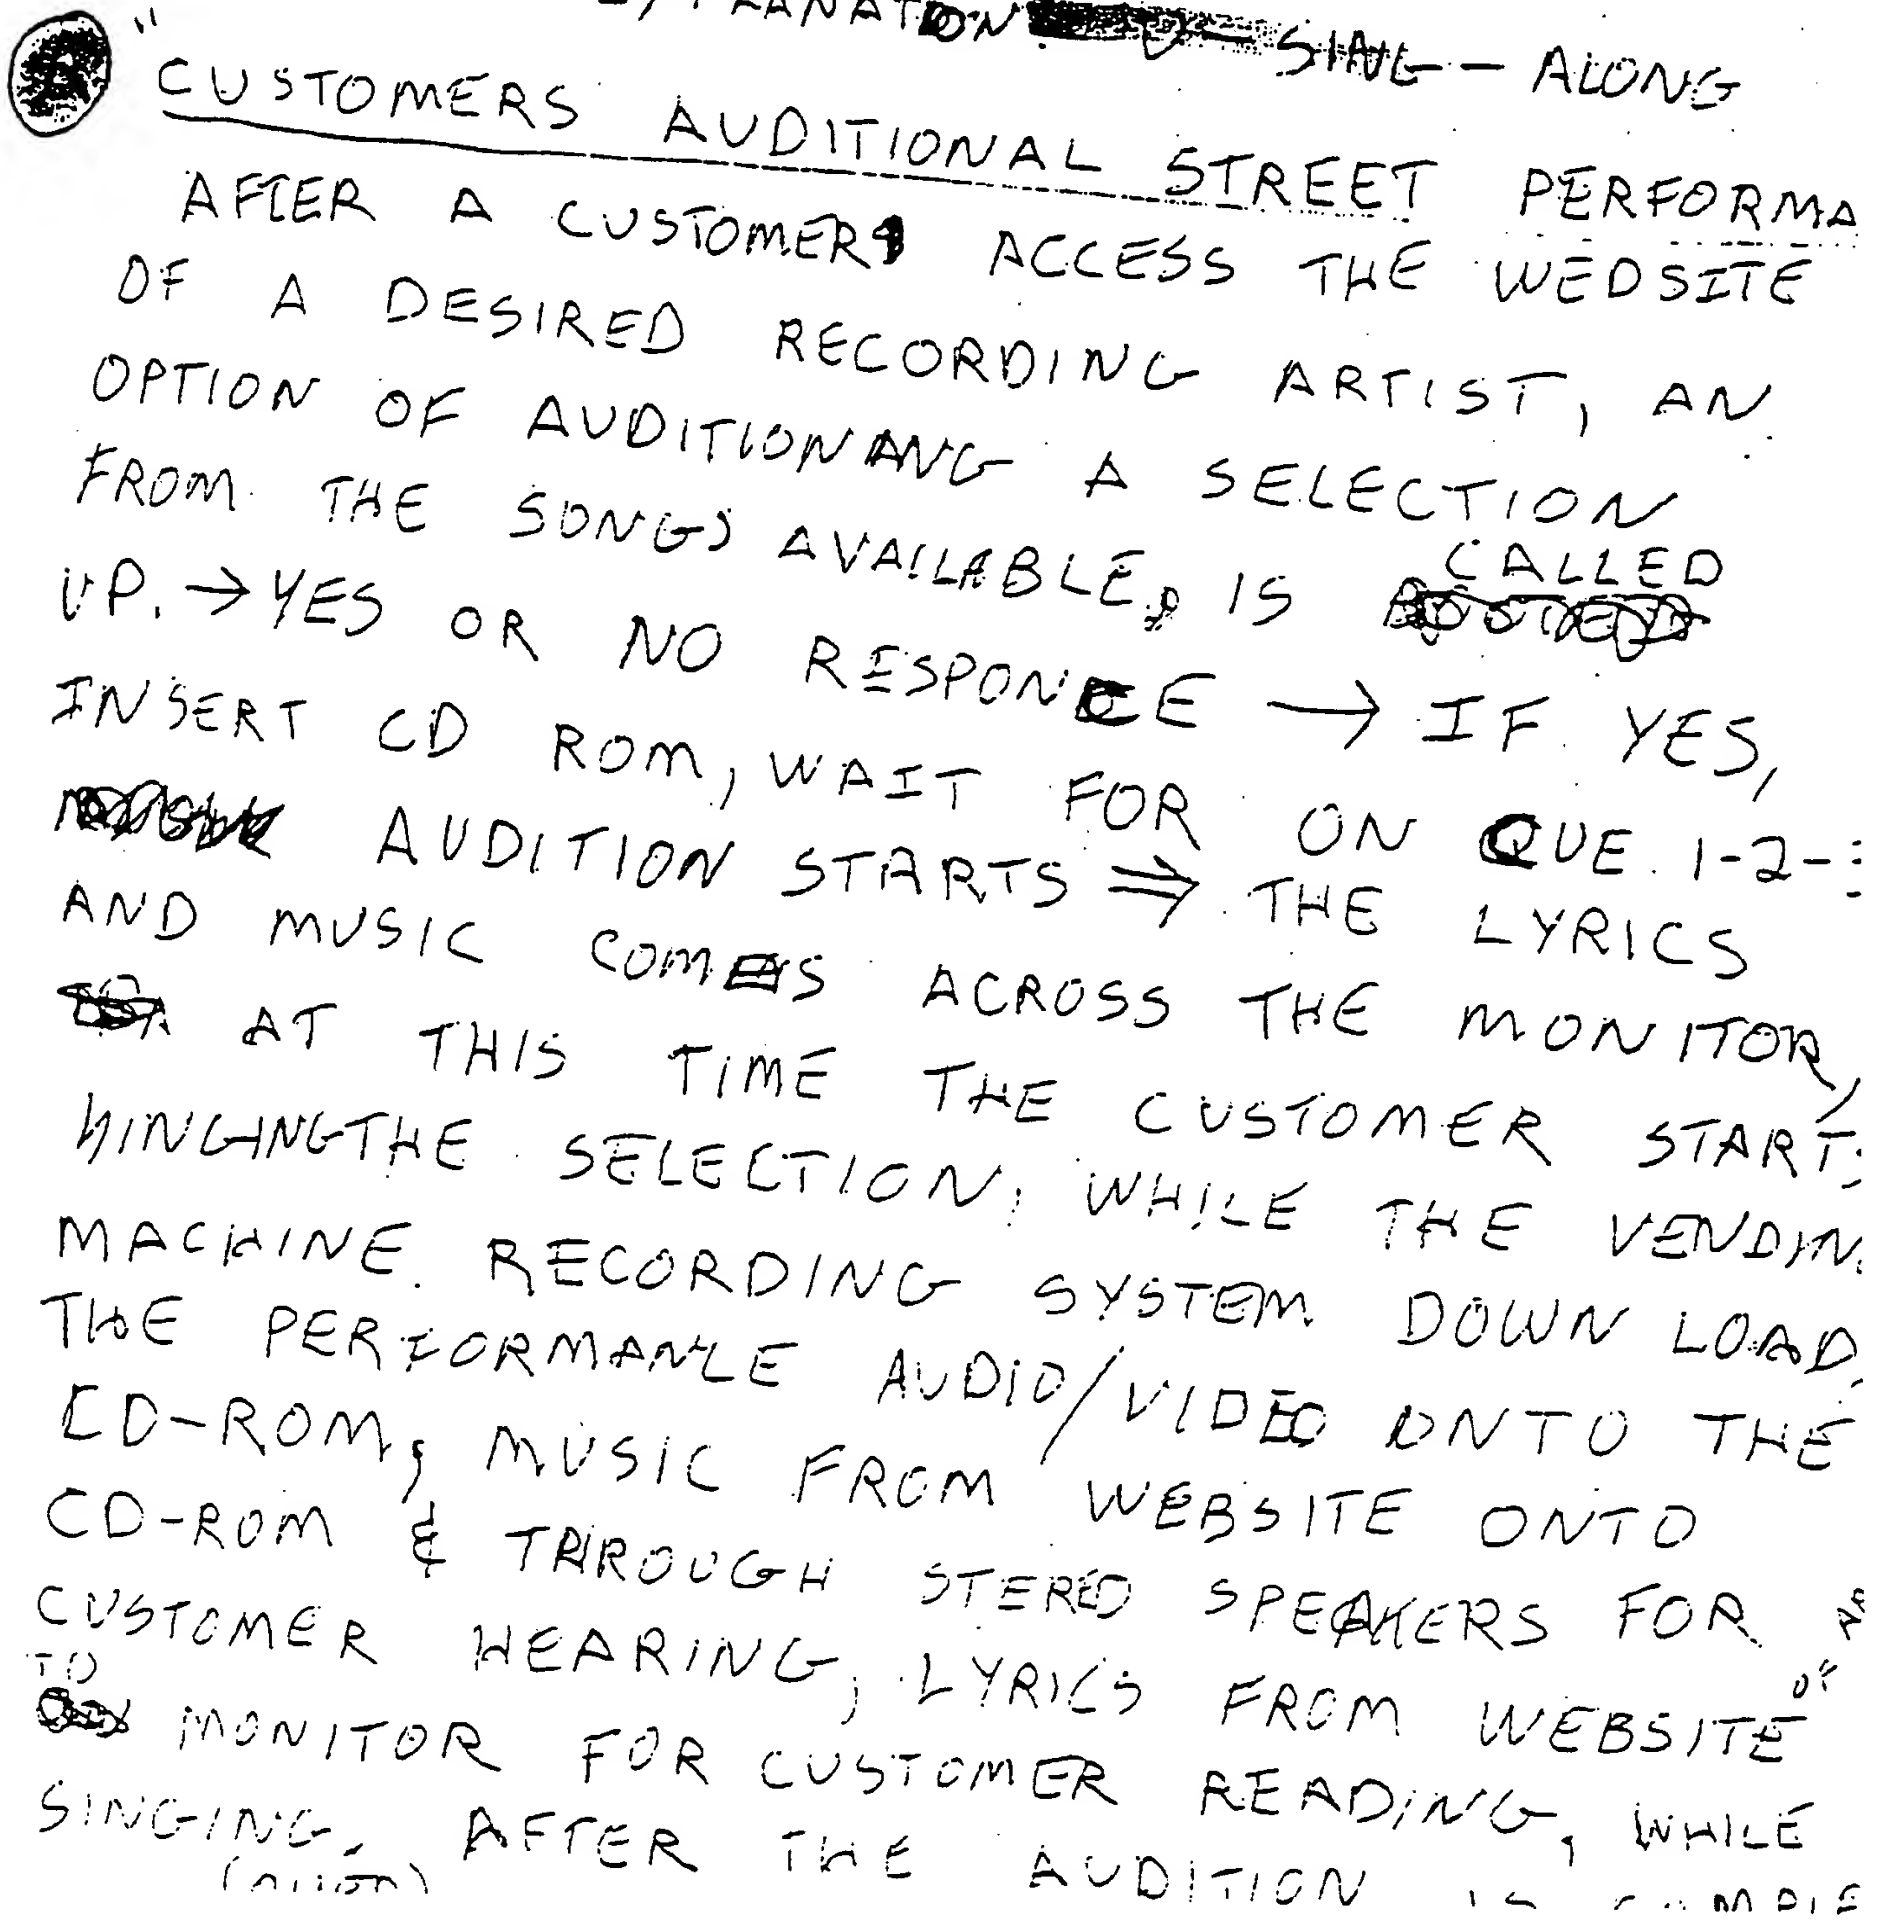 SING-ALONG
"CUSTOMERS AUDITIONAL STREET PERFORMA
AFTER A CUSTOMER ACCESS THE WEDSITE
OF A DESIRED RECORDING ARTIST, AN
OPTION OF AUDITIONANG A SELECTION
FROM THE SONGS AVAILABLE, IS CALLED
UP. → YES OR NO RESPONCE → IF YES,
INSERT CD ROM, WAIT FOR ON QUE 1-2-
AUDITION STARTS ⇒ THE LYRICS
AND MUSIC COMES ACROSS THE MONITOR,
AT THIS TIME THE CUSTOMER STARTS
SINGINGTHE SELECTION, WHILE THE VENDIN
MACHINE RECORDING SYSTEM DOWN LOAD
THE PERFORMANCE AUDIO/VIDEO ONTO THE
CD-ROM, MUSIC FROM WEBSITE ONTO
CD-ROM & THROUGH STEREO SPEAKERS FOR
CUSTOMER HEARING, LYRICS FROM WEBSITE
TO MONITOR FOR CUSTOMER READING, WHILE
SINGING. AFTER THE AUDITION